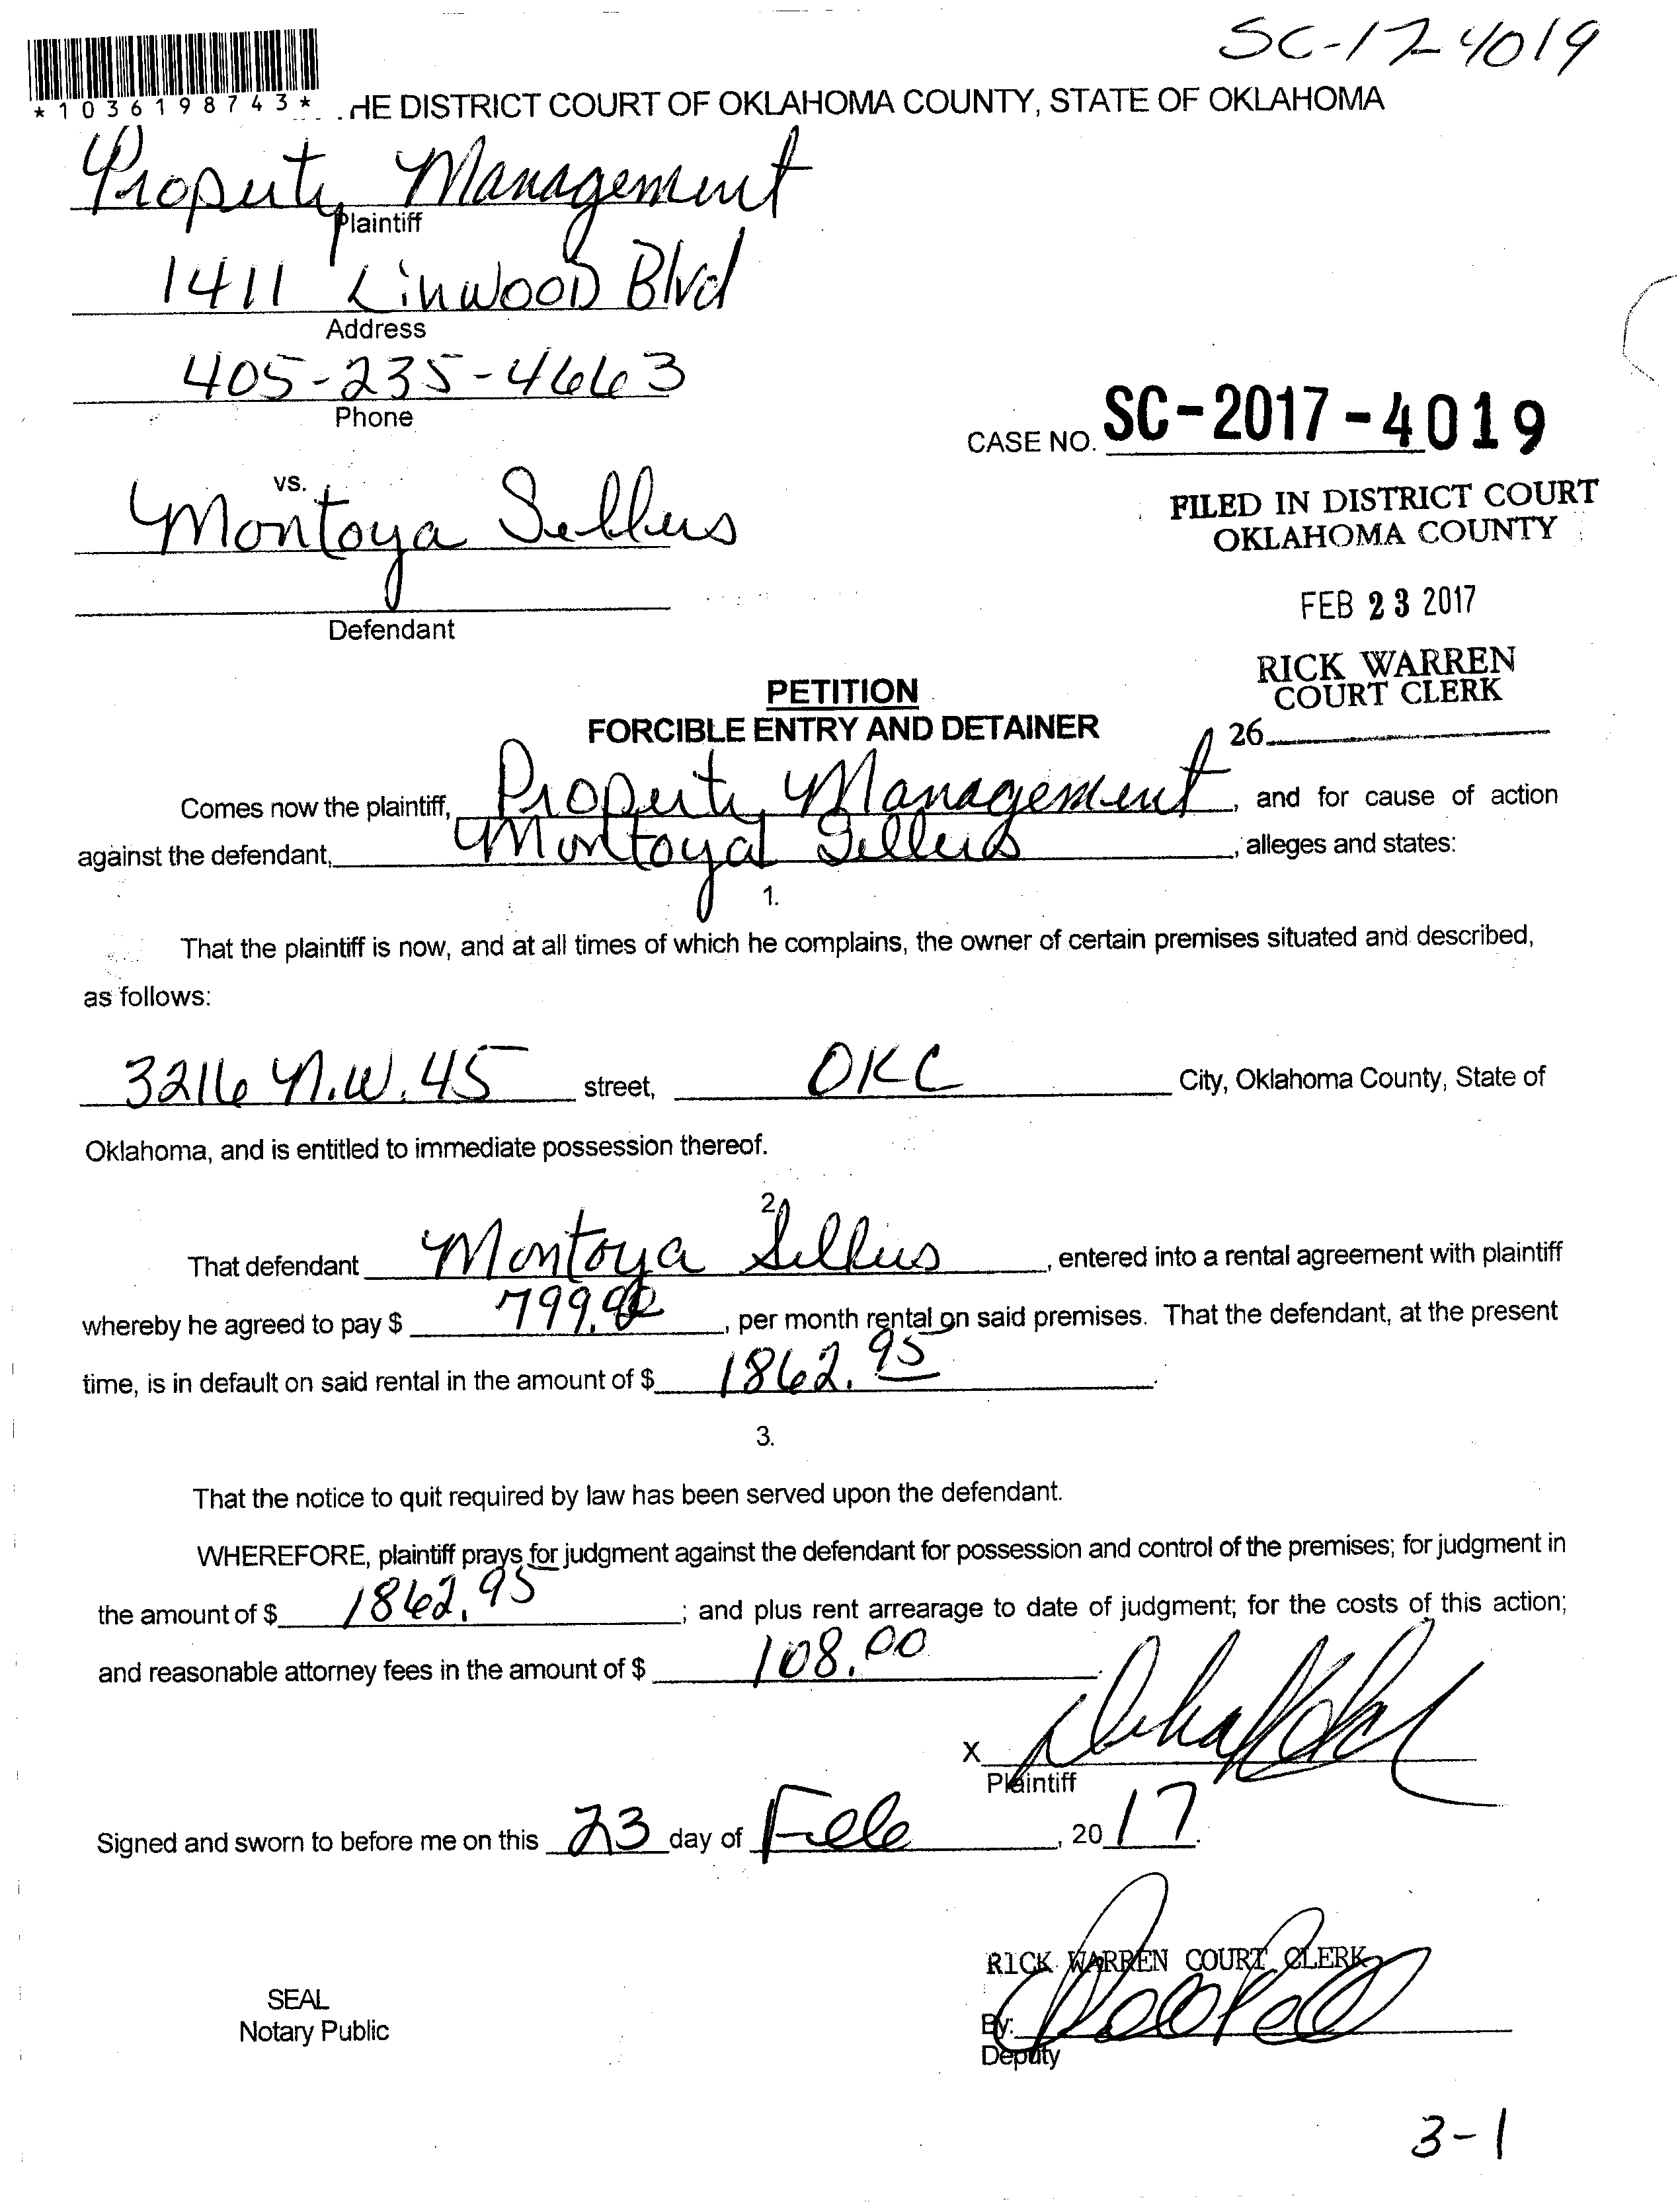 SC-17-4019
*1036198743*
HE DISTRICT COURT OF OKLAHOMA COUNTY, STATE OF OKLAHOMA
Property Management
Plaintiff
1411 Linwood Blvd
Address
405-235-4663
Phone
CASE NO. SC-2017-4019
vs.
Montoya Sellers
Defendant
FILED IN DISTRICT COURT
OKLAHOMA COUNTY
FEB 23 2017
RICK WARREN
COURT CLERK
26
PETITION
FORCIBLE ENTRY AND DETAINER
Comes now the plaintiff, Property Management, and for cause of action
against the defendant, Montoya Sellers, alleges and states:
1.
That the plaintiff is now, and at all times of which he complains, the owner of certain premises situated and described,
as follows:
3216 N.W. 45 street, OKC City, Oklahoma County, State of
Oklahoma, and is entitled to immediate possession thereof.
2.
That defendant Montoya Sellers, entered into a rental agreement with plaintiff
whereby he agreed to pay $ 799. , per month rental on said premises. That the defendant, at the present
time, is in default on said rental in the amount of $ 1862.95.
3.
That the notice to quit required by law has been served upon the defendant.
WHEREFORE, plaintiff prays for judgment against the defendant for possession and control of the premises; for judgment in
the amount of $ 1862.95; and plus rent arrearage to date of judgment; for the costs of this action;
and reasonable attorney fees in the amount of $ 108.00
X
Plaintiff
Signed and sworn to before me on this 23 day of Feb, 2017.
RICK WARREN COURT CLERK
SEAL
Notary Public
By:
Deputy
3-1